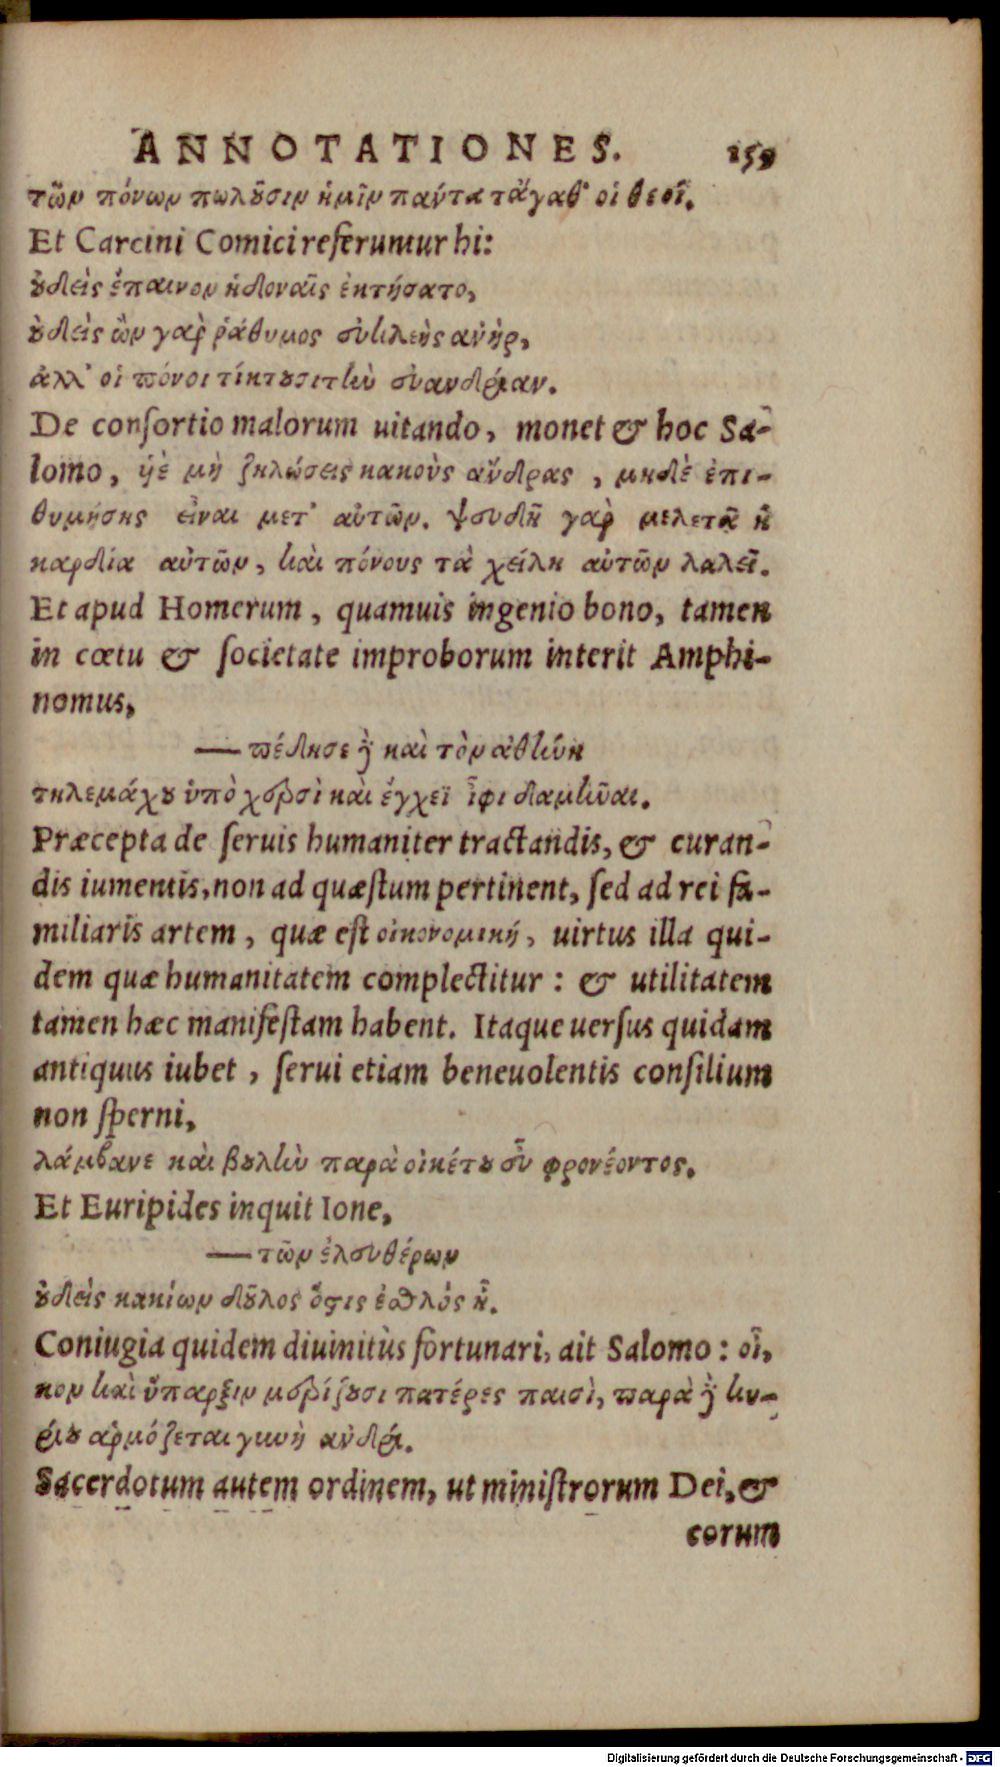 ANNOTATIONES. 159
τῶν πόνων πωλοῦσιν ἡμῖν πάντα τἄγαθ' οἱ θεοί.
Et Carcini Comici referuntur hi:
οὐδεὶς ἔπαινον ἡδοναῖς ἐκτήσατο,
οὐδεὶς ὢν γὰρ ῥάθυμος εὐκλεὴς ἀνὴρ,
ἀλλ' οἱ πόνοι τίκτουσι τὴν εὐανδρίαν.
De conſortio malorum uitando, monet & hoc Sa-
lomo, υἱὲ μὴ ζηλώσεις κακοὺς ἄνδρας, μηδὲ ἐπι-
θυμήσης εἶναι μετ' αὐτῶν. ψευδῆ γὰρ μελετᾶ ἡ
καρδία αὐτῶν, καὶ πόνους τὰ χείλη αὐτῶν λαλεῖ.
Et apud Homerum, quamuis ingenio bono, tamen
in cœtu & ſocietate improborum interit Amphi-
nomus,
— πέδησε δὲ καὶ τὸν ἀθήνη
τηλεμάχου ὑπὸ χερσὶ καὶ ἔγχεϊ ἶφι δαμῆναι.
Præcepta de ſeruis humaniter tractandis, & curan-
dis iumentis, non ad quæſtum pertinent, ſed ad rei fa-
miliaris artem, quæ eſt οἰκονομική, uirtus illa qui-
dem quæ humanitatem complectitur: & utilitatem
tamen hæc manifeſtam habent. Itaque uerſus quidam
antiquus iubet, ſerui etiam beneuolentis conſilium
non ſperni,
λάμβανε καὶ βουλὴν παρὰ οἰκέτου εὖ φρονέοντος.
Et Euripides inquit Ione,
— τῶν ἐλευθέρων
οὐδεὶς κακίων δοῦλος ὅστις ἐσθλός ἦ.
Coniugia quidem diuinitùs fortunari, ait Salomo: οἶ,
κον καὶ ὕπαρξιν μερίζουσι πατέρες παισὶ, παρὰ δὲ κυ-
ρίου ἁρμόζεται γυνὴ ἀνδρί.
Sacerdotum autem ordinem, ut miniſtrorum Dei, &
eorum
Digitalisierung gefördert durch die Deutsche Forschungsgemeinschaft - DFG